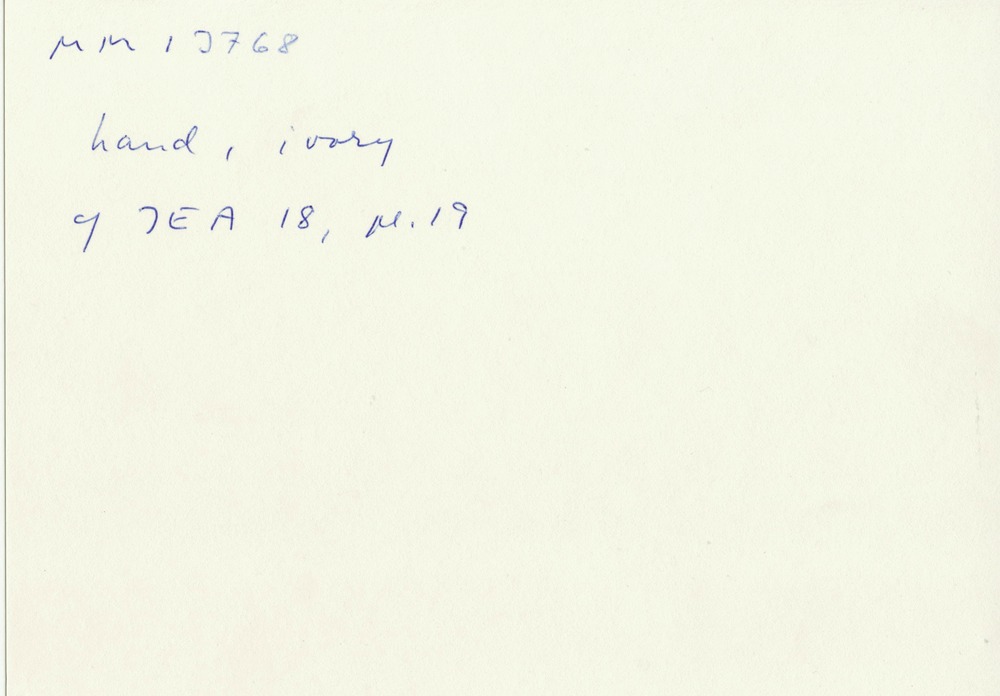 MM 13768
hand, ivory
cf JEA 18, pl. 19